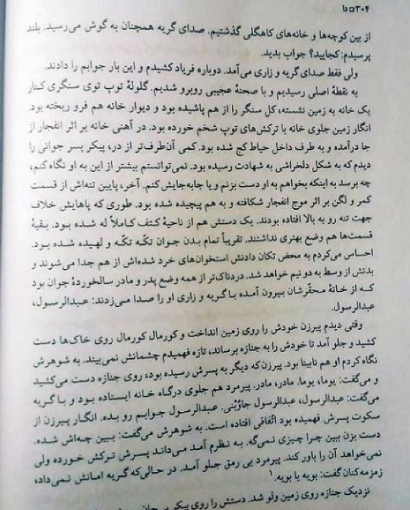 ۳۰۴ □ دا
از بین کوچه‌ها و خانه‌های کاهگلی گذشتیم. صدای گریه همچنان به گوش می‌رسید. بلند
پرسیدم: کجایید؟ جواب بدید.
ولی فقط صدای گریه و زاری می‌آمد. دوباره فریاد کشیدیم و این بار جوابم را دادند.
به نقطهٔ اصلی رسیدیم و با صحنهٔ عجیبی روبرو شدیم. گلولهٔ توپ توی سنگری کنار
یک خانه به زمین نشسته، کل سنگر را از هم پاشیده بود و دیوار خانه هم فرو ریخته بود.
انگار زمین جلوی خانه با ترکش‌های توپ شخم خورده بود. در آهنی خانه بر اثر انفجار از
جا درآمده و به طرف داخل حیاط کج شده بود. کمی آن‌طرف‌تر از در، پیکر پسر جوانی را
دیدم که به شکل دلخراشی به شهادت رسیده بود. نمی‌توانستم بیشتر از این به او نگاه کنم،
چه برسد به اینکه بخواهم به او دست بزنم و یا جابه‌جایش کنم. آخر، پایین تنه‌اش از قسمت
کمر و لگن بر اثر موج انفجار شکافته و به هم پیچیده شده بود. طوری که پاهایش خلاف
جهت تنه رو به بالا افتاده بودند. یک دستش هم از ناحیهٔ کتف کاملاً له شده بود. بقیهٔ
قسمت‌ها هم وضع بهتری نداشتند. تقریباً تمام بدن جوان تکه تکه و لهیده شده بود.
احساس می‌کردم به محض تکان دادنش استخوان‌های خرد شده‌اش از هم جدا می‌شوند و
بدنش از وسط به دو نیم خواهد شد. دردناک‌تر از همه وضع پدر و مادر سالخوردهٔ جوان بود
که از خانهٔ محقرشان بیرون آمده با گریه و زاری او را صدا می‌زدند: عبدالرسول،
عبدالرسول.
وقتی دیدم پیرزن خودش را روی زمین انداخت و کورمال کورمال روی خاک‌ها دست
کشید و جلو آمد تا خودش را به جنازه برساند، تازه فهمیدم چشمانش نمی‌بیند. به شوهرش
نگاه کردم او هم نابینا بود. پیرزن که دیگر به پسرش رسیده بود، روی جنازه دست می‌کشید
و می‌گفت: یوما، یوما. مادر، مادر. پیرمرد هم جلوی درگاه خانه ایستاده بود و با گریه
می‌گفت: عبدالرسول، عبدالرسول جاوُبْنی. عبدالرسول جوابم رو بده. انگار پیرزن از
سکوت پسرش فهمیده بود اتّفاقی افتاده است. به شوهرش می‌گفت: ببین چه‌اش شده.
دست بزن ببین چرا چیزی نمی‌گه. به نظرم آمد می‌داند پسرش ترکش خورده ولی
نمی‌خواهد آن را باور کند. پیرمرد بی رمق جلو آمد. در حالی‌که گریه امانش نمی‌داد،
زمزمه‌کنان گفت: بویه یا بویه.¹
نزدیک جنازه روی زمین ولو شد. دستش را روی پیکر